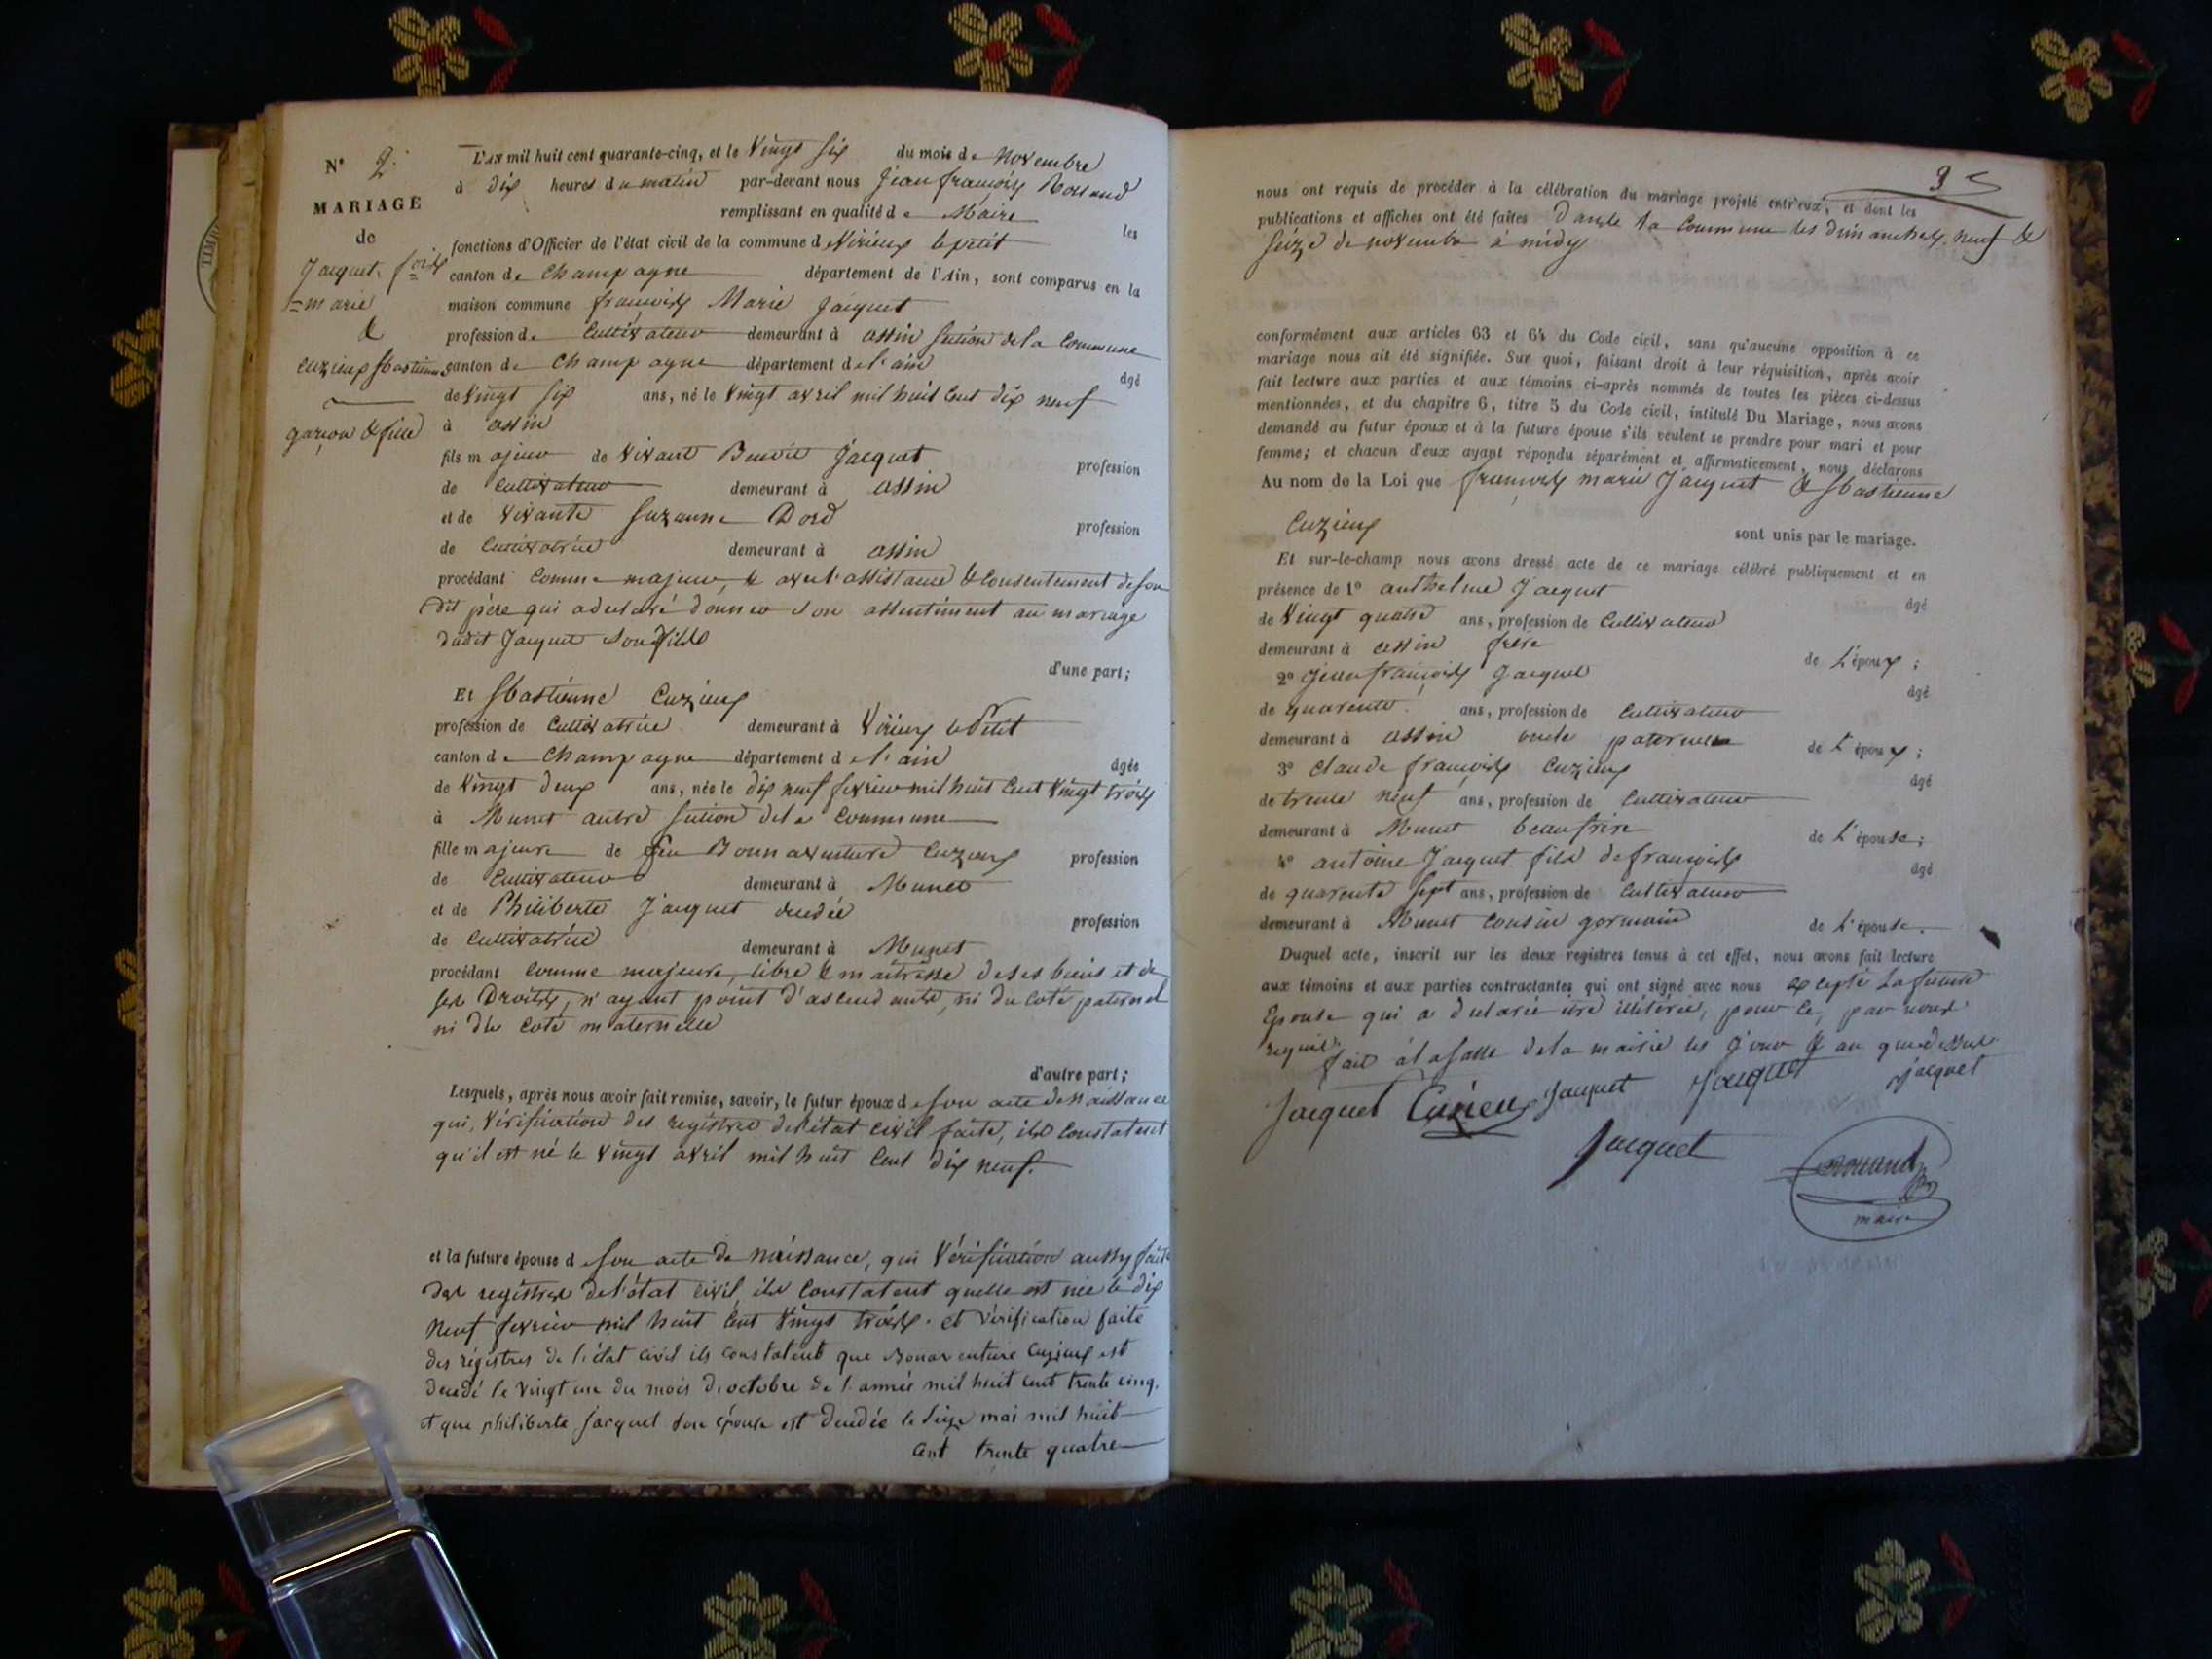 N° 2.
MARIAGE
de
Jacquet f.çois
=marie
&
Cuzieux sbastienne
garçon & fille
L'AN mil huit cent quarante-cinq, et le Vingt six du mois de novembre
à dix heures du matin par-devant nous Jean françois
remplissant en qualité de Maire les
fonctions d'Officier de l'état civil de la commune de Virieux le petit
canton de Champagne département de l'Ain, sont comparus en la
maison commune françois Marie Jacquet
profession de Cultivateur demeurant à assin section de la Commune
canton de Champagne département de l'ain âgé
de Vingt six ans, né le Vingt avril mil huit Cent dix neuf
à assin
fils majeur de vivant Benoit Jacquet profession
de Cultivateur demeurant à assin
et de vivante Suzanne Dord profession
de Cultivatrice demeurant à assin
procédant Comme majeur, & avec l'assistance & Consentement de son
dit père qui a declaré donner son assentiment au mariage
dudit Jacquet son fils
d'une part;
Et Sbastienne Cuzieux
profession de Cultivatrice demeurant à Virieux le Petit
canton de Champagne département de l'ain âgée
de Vingt deux ans, née le dix neuf fevrier mil huit Cent Vingt trois
à Munet autre section de la Commune
fille majeure de feu Bonnaventure Cuzieux profession
de Cultivateur demeurant à Munet
et de Philiberte Jacquet decedée profession
de Cultivatrice demeurant à Munet
procédant Comme majeure, libre & maitresse de ses biens et de
ses Droits, n'ayant point d'ascendants, ni du coté paternel
ni du coté maternelle
d'autre part;
Lesquels, après nous avoir fait remise, savoir, le futur époux de son acte de naissance
qui, Vérification des registres de l'état civil faite, ils Constatent
qu'il est né le Vingt avril mil huit Cent dix neuf.
et la future épouse de son acte de naissance, qui Vérification aussy faite
des registres de l'état civil, ils Constatent quelle est née le dix
neuf fevrier mil huit Cent Vingt trois. et vérification faite
des régistres de l'état civil ils constatent que Bonaventure Cuzieux est
decedé le vingt un du mois d'octobre de l'année mil huit cent trente cinq,
et que philiberte Jacquet son épouse est decedée le seize mai mil huit
cent trente quatre
nous ont requis de procéder à la célébration du mariage projeté entr'eux, et dont les
publications et affiches ont été faites dans la Commune les dimanches, neuf &
seize de novembre à midy
conformément aux articles 63 et 64 du Code civil, sans qu'aucune opposition à ce
mariage nous ait été signifiée. Sur quoi, faisant droit à leur réquisition, après avoir
fait lecture aux parties et aux témoins ci-après nommés de toutes les pièces ci-dessus
mentionnées, et du chapitre 6, titre 5 du Code civil, intitulé Du Mariage, nous avons
demandé au futur époux et à la future épouse s'ils veulent se prendre pour mari et pour
femme; et chacun d'eux ayant répondu séparément et affirmativement, nous déclarons
Au nom de la Loi que françois marie Jacquet & Sbastienne
Cuzieux sont unis par le mariage.
Et sur-le-champ nous avons dressé acte de ce mariage célébré publiquement et en
présence de 1° anthelme Jacquet âgé
de Vingt quatre ans, profession de Cultivateur
demeurant à assin frère de L'époux;
2° Jean françois Jacquet âgé
de quarente ans, profession de Cultivateur
demeurant à assin oncle paternelle de L'époux;
3° Claude françois Cuzieux âgé
de trente neuf ans, profession de Cultivateur
demeurant à Munet beaufrère de L'épouse;
4° antoine Jacquet fils de françois âgé
de quarente sept ans, profession de Cultivateur
demeurant à Munet Cousin germain de L'épouse.
Duquel acte, inscrit sur les deux registres tenus à cet effet, nous avons fait lecture
aux témoins et aux parties contractantes qui ont signé avec nous excepté La future
Epouse qui a declaré être illitérée, pour ce, par nous
requise.
fait à la salle de la mairie les jour & an que dessus
Jacquet Cuzieux Jacquet Jacquet Jacquet
Jacquet
maire